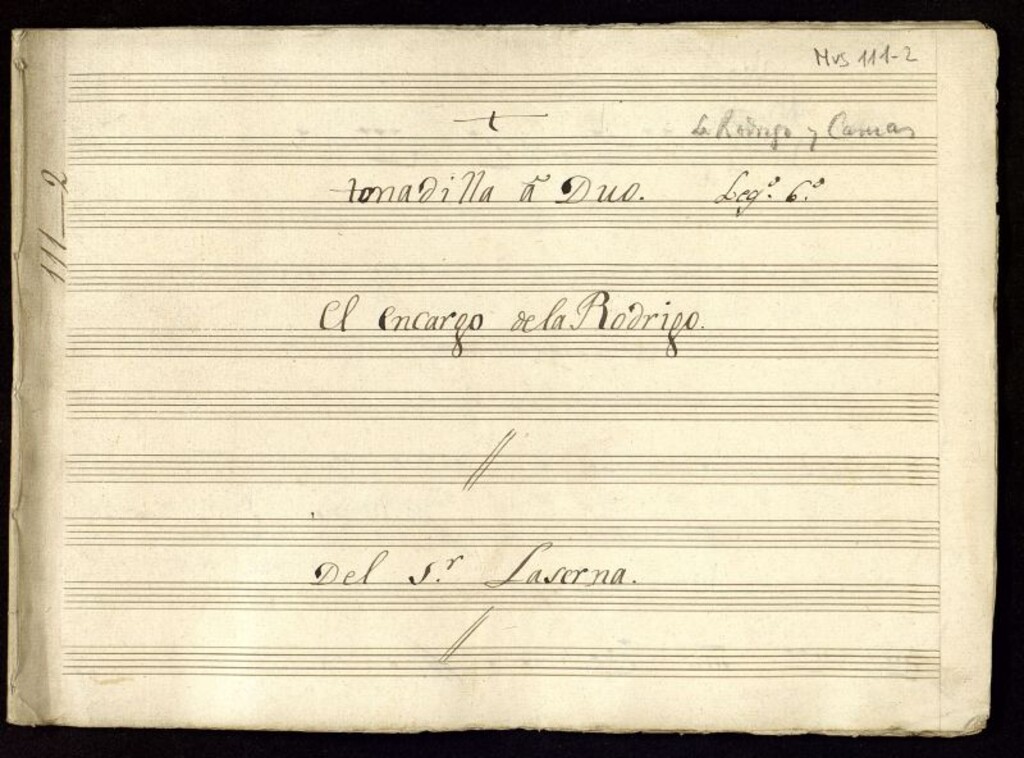 Mus 111-2
La Rodrigo y Camas
111—2
tonadilla â Duo. Legº. 6.º
El encargo de la Rodrigo.
Del S.r Laserna.